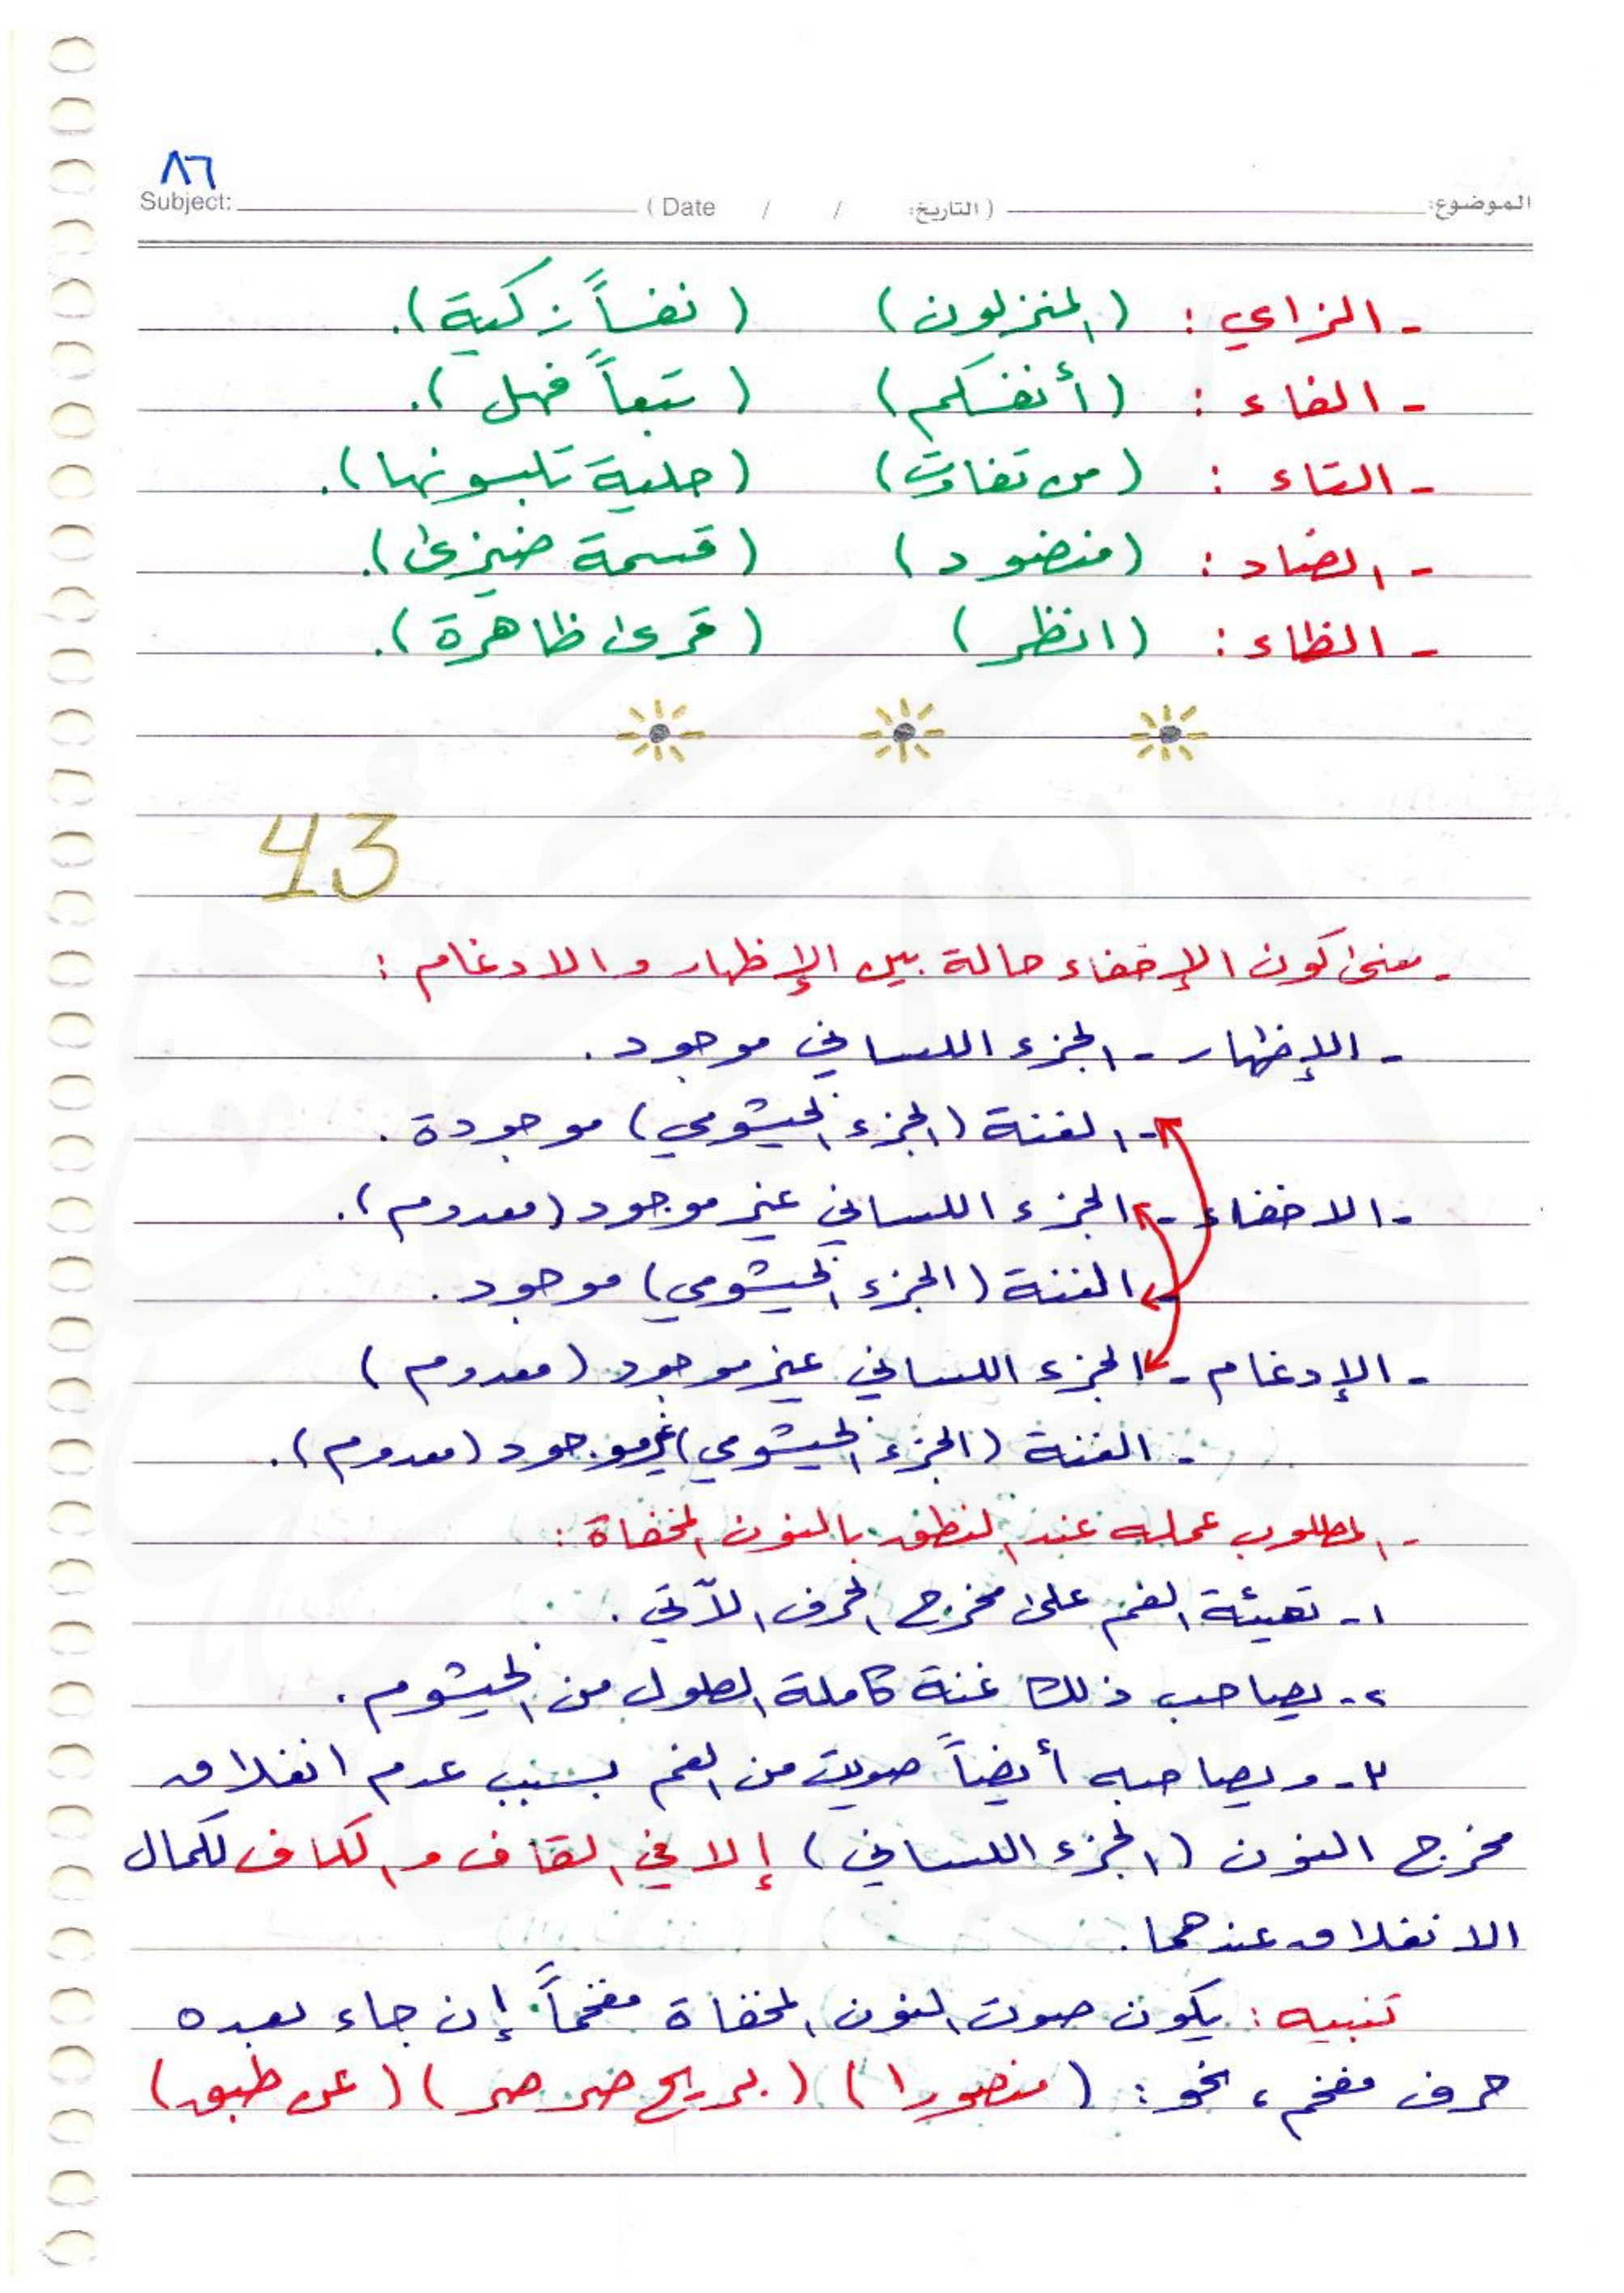 ٨٦
Subject: (Date / / التاريخ:) الموضوع:
- الزاي : (المنزلون) (نفساً زكية).
- الفاء : (أنفسكم) (تبعاً فهل).
- التاء : (من تفاوت) (حلية تلبسونها).
- الضاد : (منضود) (قسمة ضيزى).
- الظاء : (انظر) (قرى ظاهرة).
43
- معنى كون الإخفاء حالة بين الإظهار والادغام :
- الإظهار - الجزء اللساني موجود .
- الغنة (الجزء الخيشومي) موجودة .
- الاخفاء - الجزء اللساني غير موجود (معدوم).
- الغنة (الجزء الخيشومي) موجود .
- الإدغام - الجزء اللساني غير موجود (معدوم)
- الغنة (الجزء الخيشومي) غير موجود (معدوم).
- المطلوب عمله عند النطق بالنون المخفاة :
١- تهيئة الفم على مخرج الحرف الآتي .
٢- يصاحب ذلك غنة كاملة الطول من الخيشوم .
٣- ويصاحبه أيضاً صويت من الفم بسبب عدم انغلاق
مخرج النون (الجزء اللساني) إلا في القاف والكاف لكمال
الانغلاق عندهما .
تنبيه : يكون صوت النون المخفاة مفخماً إن جاء بعده
حرف مفخم ، نحو : (منصورا) (بريح صرصر) (عن طبق)